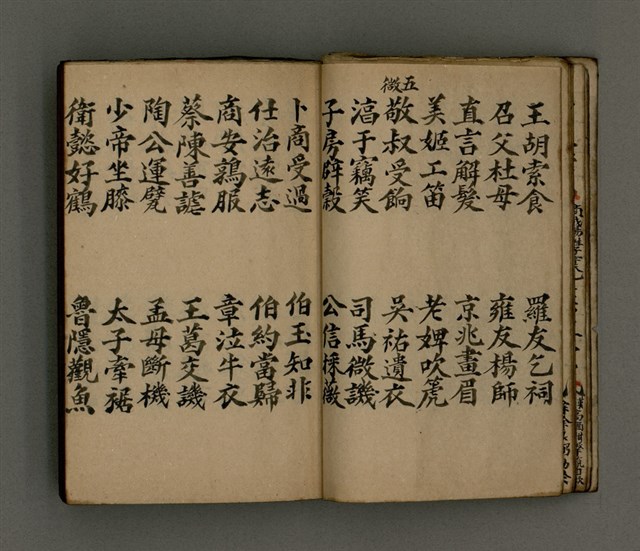 王胡索食　羅友乞祠
召父杜母　雍友楊師
直言解髮　京兆畫眉
美姬工笛　老婢吹箎
五微
敬叔受餉　吳祐遺衣
湻于竊笑　司馬微譏
子房辟穀　公信採薇
卜商受過　伯玉知非
仕治遠志　伯約當歸
商安鶉服　章泣牛衣
蔡陳善謔　王葛交譏
陶公運甓　孟母斷機
少帝坐膝　太子牽裾
衛懿好鶴　魯隱觀魚